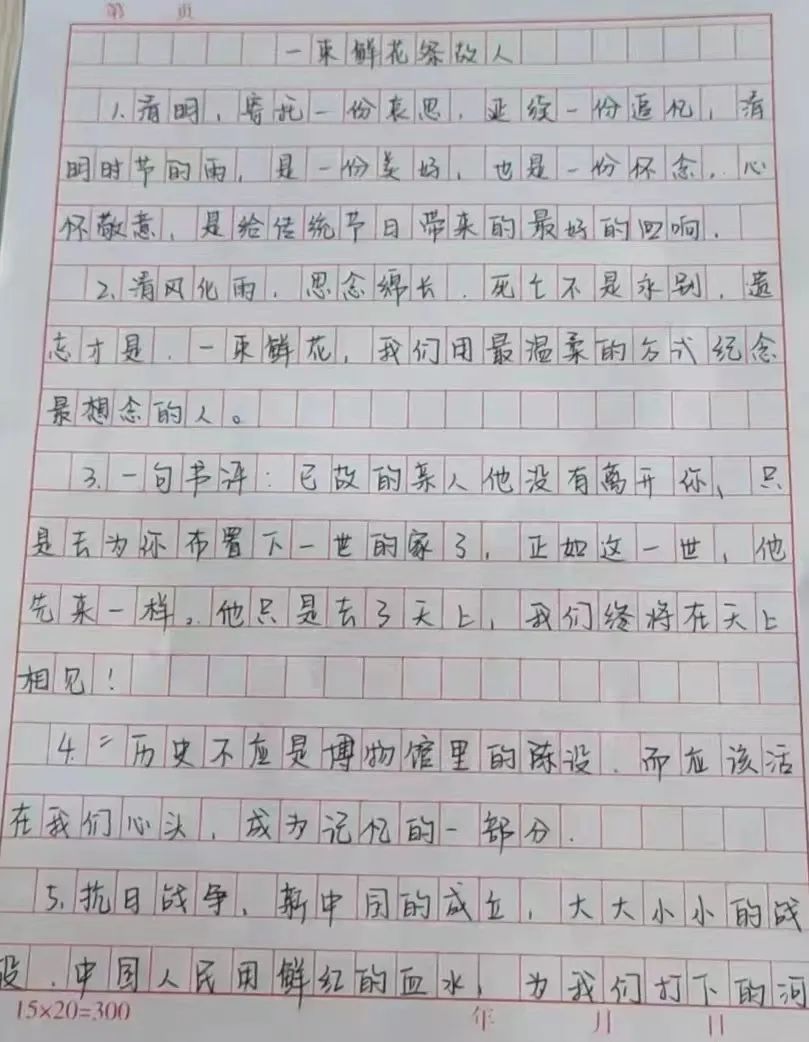 第 页
一束鲜花祭故人
1.清明,寄托一份哀思,延续一份追忆,清
明时节的雨,是一份美好,也是一份怀念,心
怀敬意,是给传统节日带来的最好的回响.
2.清风化雨,思念绵长.死亡不是永别,遗
忘才是.一束鲜花,我们用最温柔的方式纪念
最想念的人。
3.一句书评:已故的亲人他没有离开你、只
是去为你布置下一世的家了,正如这一世,他
先来一样。他只是去了天上,我们终将在天上
相见!
4.历史不应是博物馆里的陈设.而应该活
在我们心头,成为记忆的一部分.
5.抗日战争,新中国的成立,大大小小的战
役.中国人民用鲜红的血水,为我们打下的河
15×20=300 年 月 日